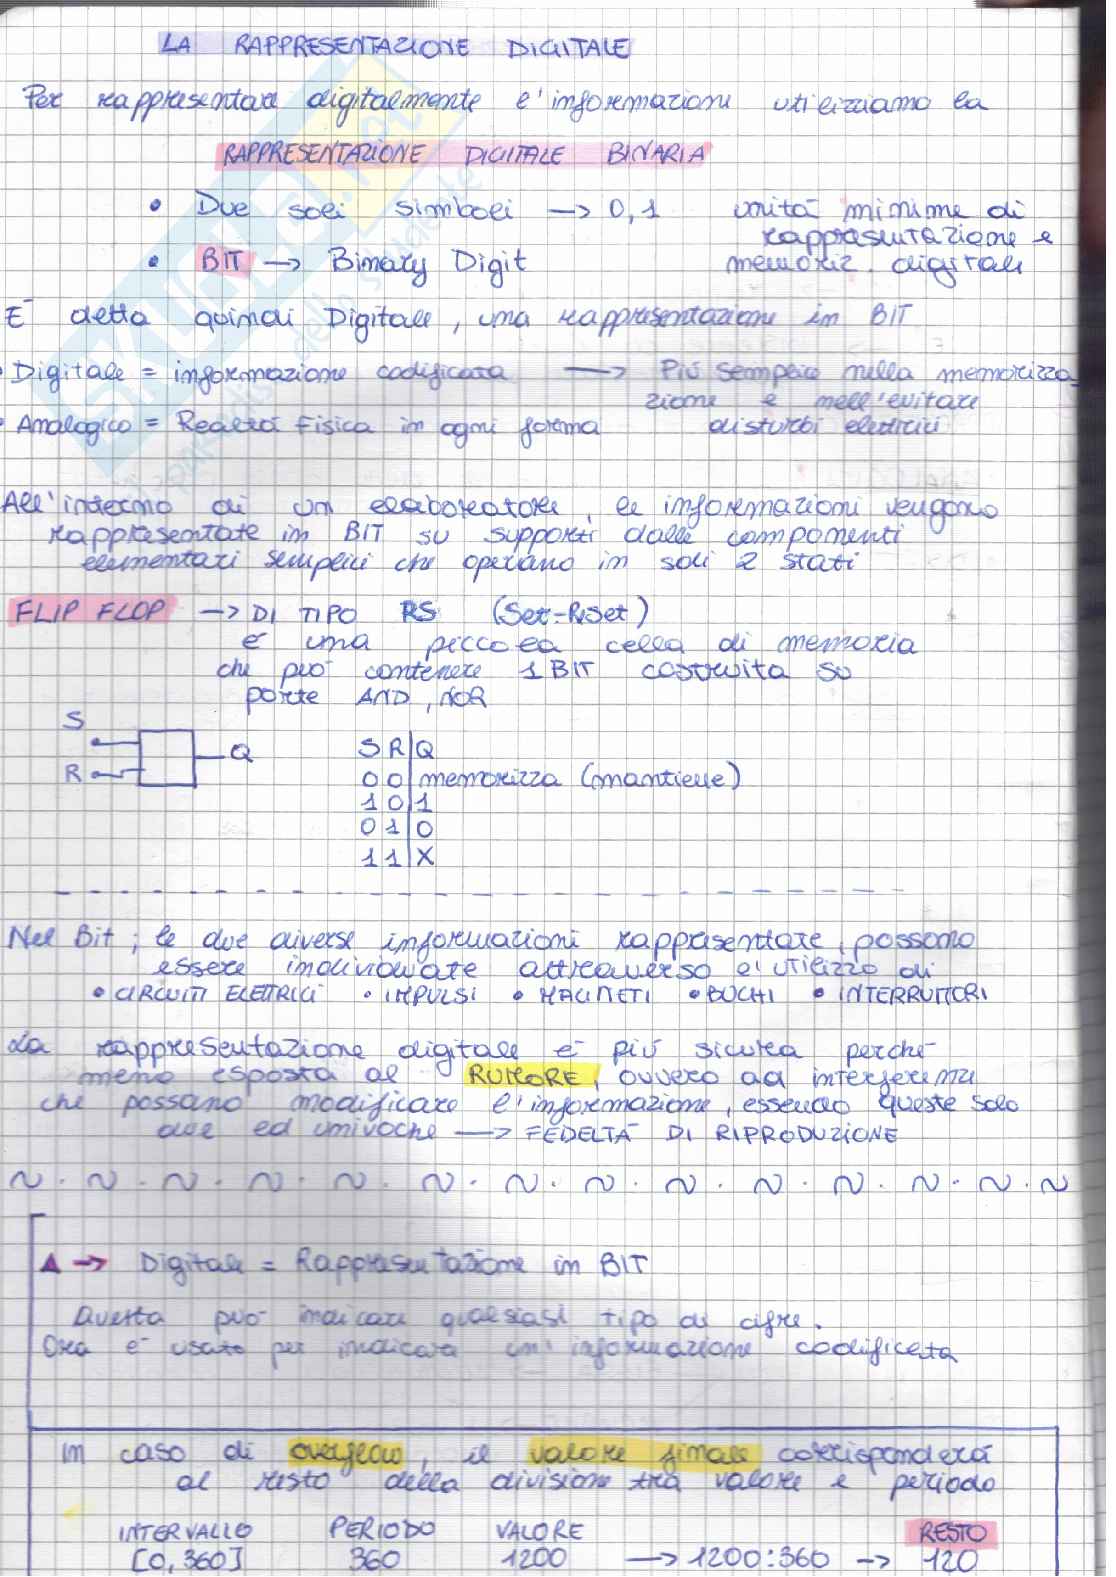 LA RAPPRESENTAZIONE DIGITALE
Per rappresentare digitalmente l'informazione utilizziamo la
RAPPRESENTAZIONE DIGITALE BINARIA
• Due soli simboli → 0,1 unità minime di
rappresentazione e
• BIT → Binary Digit memoriz. digitali
E' detta quindi Digitale, una rappresentazione in BIT
• Digitale = informazione codificata → Più semplice nella memorizza
zione e nell'evitare
• Analogico = Realtà Fisica in ogni forma disturbi elettrici
All'interno di un elaboratore, le informazioni vengono
rappresentate in BIT su supporti dalle componenti
elementari semplici che operano in soli 2 stati
FLIP FLOP → DI TIPO RS (Set-Riset)
è una piccola cella di memoria
che può contenere 1 BIT costruita su
porte AND, NOR
S
R Q
S R | Q
0 0 | memorizza (mantiene)
1 0 | 1
0 1 | 0
1 1 | X
Nel Bit; le due diverse informazioni rappresentate, possono
essere individuate attraverso l'utilizzo di
• CIRCUITI ELETTRICI • IMPULSI • MAGNETI • BUCHI • INTERRUTTORI
La rappresentazione digitale è più sicura perché
meno esposta al RUMORE, ovvero ad interferenze
che possano modificare l'informazione, essendo queste solo
due ed univoche → FEDELTA' DI RIPRODUZIONE
→ Digitale = Rappresentazione in BIT
Questa può indicare qualsiasi tipo di cifre.
Ora è usato per indicare un'informazione codificata
In caso di overflow, il valore finale corrisponderà
al resto della divisione tra valore e periodo
INTERVALLO PERIODO VALORE RESTO
[0,360] 360 1200 → 1200:360 → 120